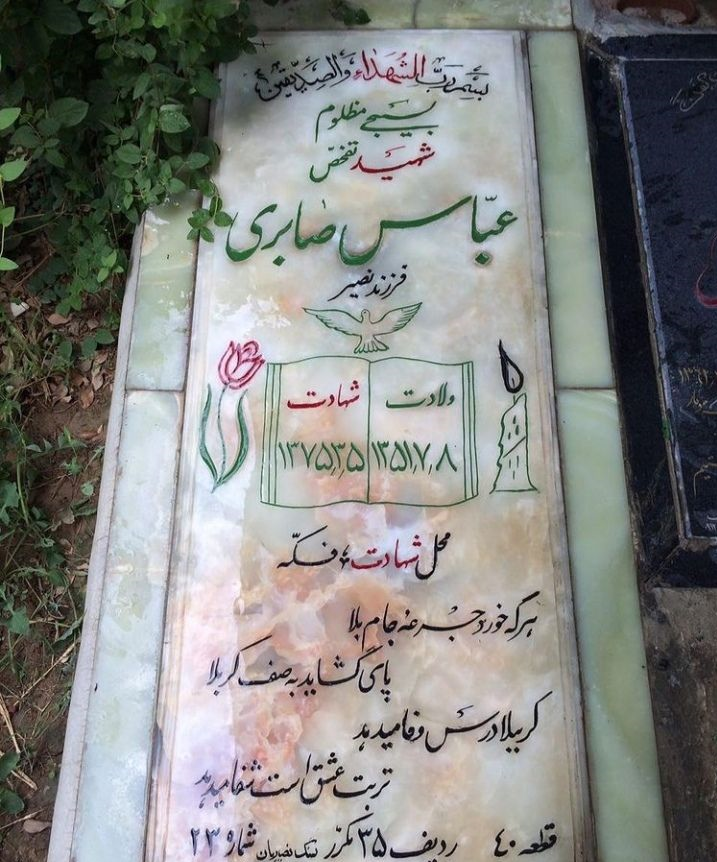 بسم رب الشهداء والصدیقین
بسیجی مظلوم
شهید تفحص
عباس صابری
فرزند نصیر
ولادت
۱۳۵۱,۷,۸
شهادت
۱۳۷۵,۳,۵
محل شهادت، فکّه
هر که خورد جرعه جام بلا
پای گشاید به صف کربلا
کربلا درس وفا میدهد
تربت عشق است شفا میدهد
قطعه ۴۰ ردیف ۳۵ مکرر سنگ نصیریان شماره ۲۳